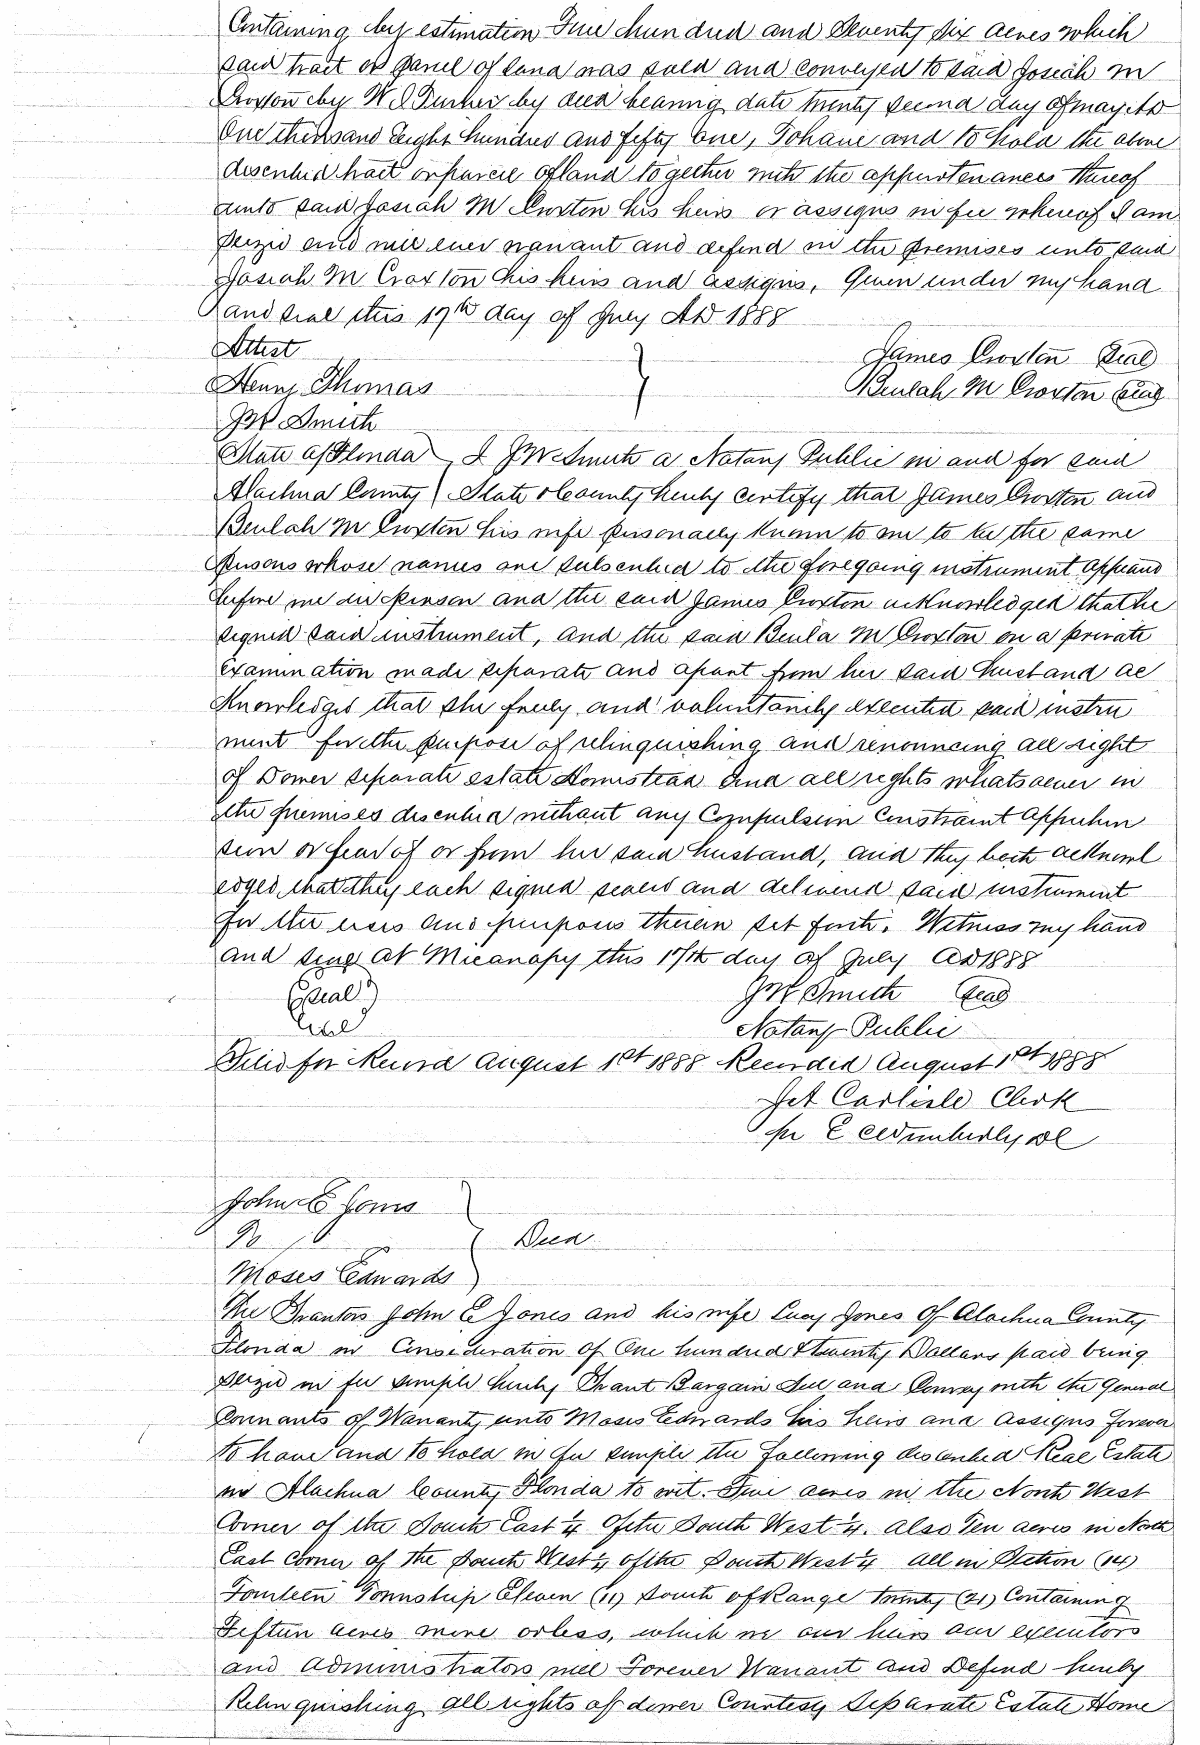 Containing by estimation Five hundred and Seventy Six acres which
said tract or parcel of land was sold and conveyed to said Josiah M
Croxton by W J Turner by deed bearing date twenty second day of May AD
One thousand Eight hundred and fifty one, To have and to hold the above
described tract or parcel of land together with the appurtenances thereof
unto said Josiah M Croxton his heirs or assigns in fee whereof I am
seized and will ever warrant and defend in the premises unto said
Josiah M Croxton his heirs and assigns. Given under my hand
and seal this 17th day of July AD 1888
Attest
James Croxton Seal
Henry Thomas
Beulah M Croxton Seal
JW Smith
State of Florida I JW Smith a Notary Public in and for said
Alachua County State & County hereby certify that James Croxton and
Beulah M Croxton his wife personally known to me to be the same
persons whose names are subscribed to the foregoing instrument appeared
before me in person and the said James Croxton acknowledged that he
signed said instrument, and the said Beula M Croxton on a private
examination made separate and apart from her said husband ac
knowledged that she freely and voluntarily executed said instru
ment for the purpose of relinquishing and renouncing all right
of Dower separate estate Homestead and all rights whatsoever in
the premises described without any Compulsion Constraint Apprehen
sion or fear of or from her said husband, and they both acknowl
edged that they each signed sealed and delivered said instrument
for the uses and purposes therein set forth. Witness my hand
and seal at Micanopy this 17th day of July AD 1888
Seal
JW Smith Seal
Seal
Notary Public
Filed for Record August 1st 1888 Recorded August 1st 1888
Carlisle Clerk
per E C Wimberly DC
John E Jones
To
Deed
Moses Edwards
The Grantors John E Jones and his wife Lucy Jones of Alachua County
Florida in Consideration of One hundred & twenty Dollars paid being
seized in fee simple hereby Grant Bargain Sell and Convey with the General
Covenants of Warranty unto Moses Edwards his heirs and assigns forever
to have and to hold in fee simple the following described Real Estate
in Alachua County Florida to wit. Five acres in the North West
Corner of the South East ¼ of the South West ¼. also Ten acres in North
East Corner of the South West ¼ of the South West ¼ all in Section (14)
Fourteen Township Eleven (11) South of Range twenty (21) Containing
Fifteen acres more or less, which we our heirs our executors
and administrators will Forever Warrant and Defend hereby
Relinquishing all rights of dower Courtesy Separate Estate Home